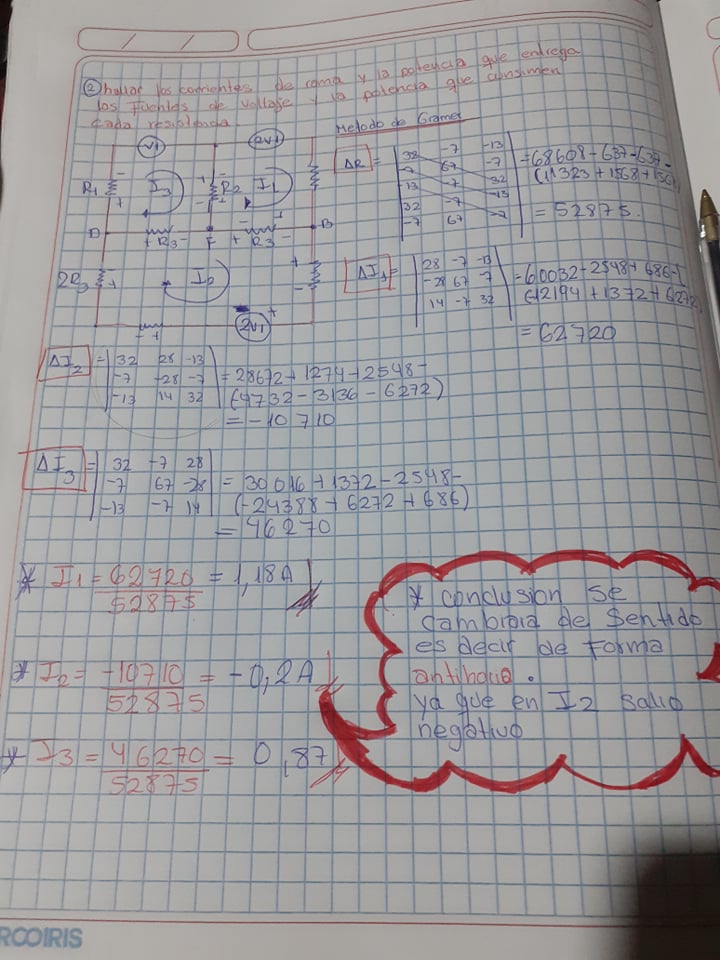 ② hallar los corrientes de rama y la potencia que entrega
los Fuentes de voltaje y la potencia que consimen
cada resistencia
Metodo de Gramer
V1
2V1
R1
I3
R2
I1
D
+ R3 -
F
+ R3 -
B
2R3
I2
2V1
ΔR =
32 -7 -13
-7 67 -7
-13 -7 32
32 -7 -13
-7 67 -7
= 68608 - 637 - 637 -
(11323 + 1568 + 1568)
= 52875.
ΔI1 =
28 -7 -13
-28 67 -7
14 -7 32
= 60032 - 2548 + 686 -
(-12194 + 1372 + 6272)
= 62720
ΔI2 =
32 28 -13
-7 -28 -7
-13 14 32
= -28672 + 1274 + 2548 -
(-4732 - 3136 - 6272)
= -10 710
ΔI3 =
32 -7 28
-7 67 -28
-13 -7 14
= 30 016 + 1372 - 2548 -
(-24388 + 6272 + 686)
= 46270
* I1 = 62720 = 1,18A
52875
* I2 = -10710 = -0,2A
52875
* I3 = 46270 = 0,87
52875
* Conclusion se
cambiaia de Sentido
es decir de Forma
antihoria.
ya que en I2 salio
negativo
RCOIRIS